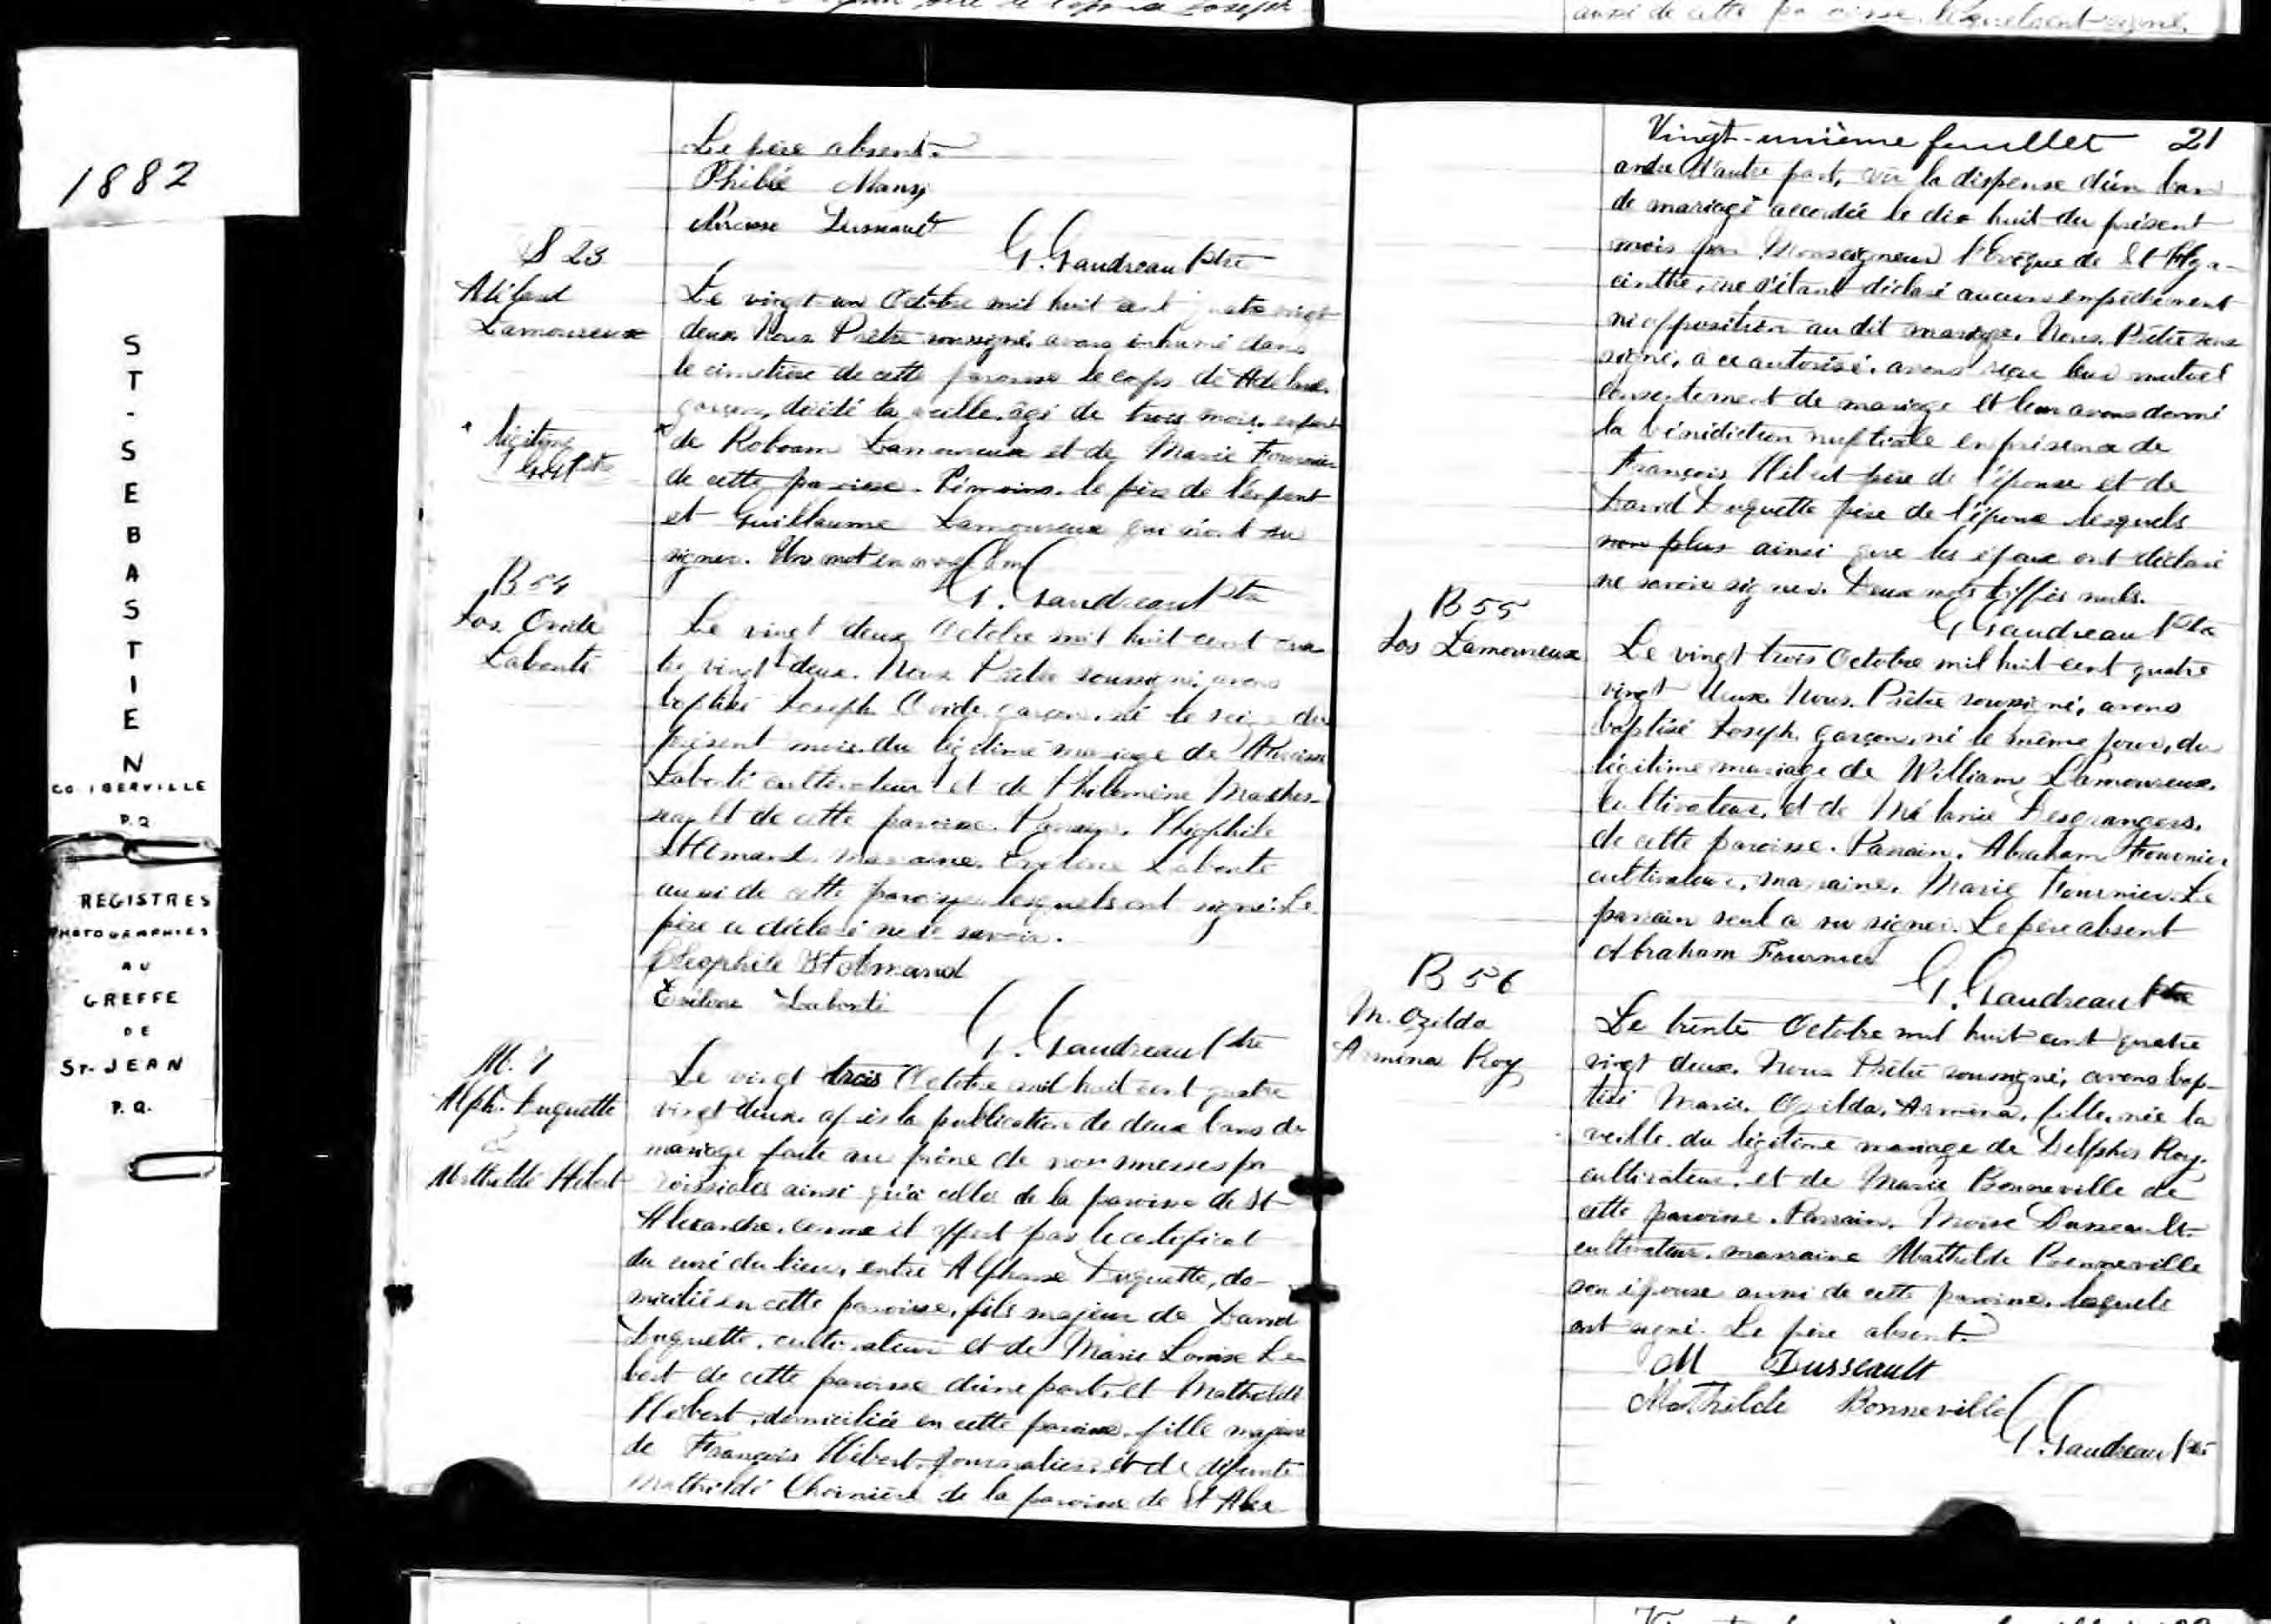 1882
ST-SEBASTIEN
CO. IBERVILLE
P.Q
REGISTRES
PHOTOGRAPHIES
AU
GREFFE
DE
ST-JEAN
P.Q.
aussi de cette paroisse lesquels ont signé.
Le père absent.
Dussault
G. Gaudreau Ptre
S 23
Lamoureux
Le vingt-un Octobre mil huit cent quatre vingt
deux. Nous Prêtre soussigné, avons inhumé dans
le cimetière de cette paroisse le corps de
garçon, décédé la veille, âgé de trois mois, enfant
* légitime
* de Roboam Lamoureux et de Marie Fournier
de cette paroisse. Témoins, le père de l'enfant
et Guillaume Lamoureux qui n'ont su
signer. Un mot en marge
G. Gaudreau Ptre
B 54
Jos. Ovide
Labonté
Le vingt deux Octobre mil huit cent qua
tre vingt deux. Nous Prêtre soussigné, avons
baptisé Joseph Ovide, garçon, né le seize du
présent mois, du légitime mariage de Narcisse
Labonté cultivateur et de Philomène Marches-
seault de cette paroisse. Parrain, Théophile
St Amand, marraine, Labonté
aussi de cette paroisse lesquels ont signé. Le
père a déclaré ne le savoir.
Théophile St Amand
Labonté
G. Gaudreau Ptre
M. 7
Alph. Duquette
&
Mathilde Hébert
Le vingt trois Octobre mil huit cent quatre
vingt deux, après la publication de deux bans de
mariage faite au prône de nos messes pa
roissiales ainsi qu'à celles de la paroisse de St
Alexandre, comme il appert par le certificat
du curé du lieu, entre Alphonse Duquette, do-
micilié en cette paroisse, fils majeur de David
Duquette, cultivateur et de Marie Louise
bert de cette paroisse d'une part, et Mathilde
Hébert, domiciliée en cette paroisse, fille majeure
de François Hébert, journalier, et de défunte
Mathilde Choinière de la paroisse de St Alex
Vingt-unième feuillet 21
andre d'autre part, vu la dispense d'un ban
de mariage accordée le dix huit du présent
mois par Monseigneur l'Evêque de St Hya-
cinthe, ne s'étant déclaré aucun empêchement
ni opposition au dit mariage, Nous, Prêtre sous
signé, à ce autorisé, avons reçu leur mutuel
consentement de mariage et leur avons donné
la bénédiction nuptiale en présence de
François Hébert père de l'épouse et de
David Duquette père de l'époux lesquels
non plus ainsi que les époux ont déclaré
ne savoir signer. Deux mots biffés nuls.
G. Gaudreau Ptre
B 55
Jos Lamoureux
Le vingt trois Octobre mil huit cent quatre
vingt deux. Nous. Prêtre soussigné, avons
baptisé Joseph, garçon, né le même jour, du
légitime mariage de William Lamoureux,
cultivateur, et de Mélanie Desgrangers,
de cette paroisse. Parrain, Abraham Fournier
cultivateur, marraine, Marie Fournier. Le
parrain seul a su signer. Le père absent
Abraham Fournier
G. Gaudreau Ptre
B 56
M. Ozilda
Armina Roy
Le trente Octobre mil huit cent quatre
vingt deux. Nous Prêtre soussigné, avons bap-
tisé Marie, Ozilda, Armina, fille, née la
veille du légitime mariage de Delphis Roy,
cultivateur, et de Marie Bonneville de
cette paroisse. Parrain, Moïse Dusseault
cultivateur, marraine Mathilde Bonneville
son épouse aussi de cette paroisse, lesquels
ont signé. Le père absent.
M Dusseault
Mathilde Bonneville
G. Gaudreau Ptre